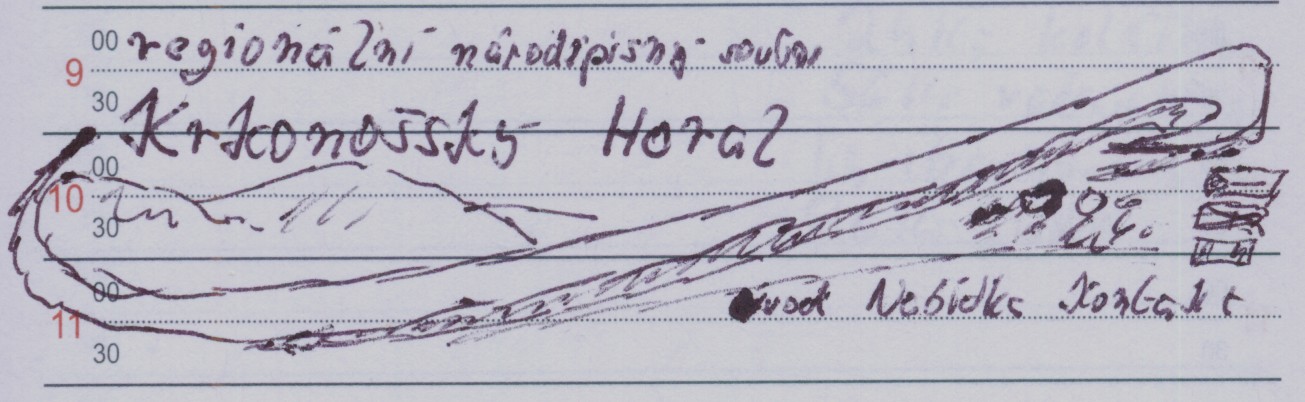 00 regionální národopisný soubor
9
30
Krkonošský Horal
00
10
30
00
Úvod Nabídka Kontakt
11
30